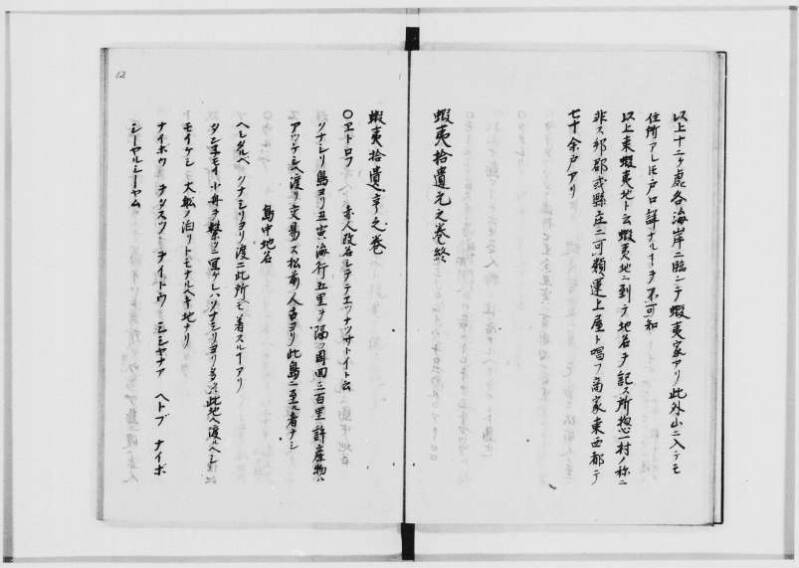 以上十二ヶ處各海岸ニ臨ンテ蝦夷家アリ此外山ニ入テモ
住所アレ𪜈戸口詳ナルヿヲ不可知
以上東蝦夷地ト云蝦夷地ニ到テ地名ヲ記ス所惣一村ノ称ニ
非ス郷郡或縣庄ニ可類運上屋ト唱フ商家東西都テ
七十余戸アリ
蝦夷拾遺元之巻終
蝦夷拾遺亨之巻
〇ヱトロフ 赤人改名
ソナシリ島ヨリ丑寅海行五里ヲ隔ツ周回三百里許産物ハ
アツケシヘ渡リ交易ス松前人古ヨリ此島ニ至ル者ナシ
島中地名
ヘレタルベ クナシリヨリ渡ニ此所ヘ着スルヿアリ
タン子モイ 小舟ヲ繋クニ冝ケレハクナシリヨリ此地ヘ渡ルヘシ
モイケシ 大舩ノ泊リトモナルヘキ地ナリ
ナイボウ ヲタスツ ヲイトウ シシヤナア ヘトブ ナイボ
シーヤルシーヤム
12